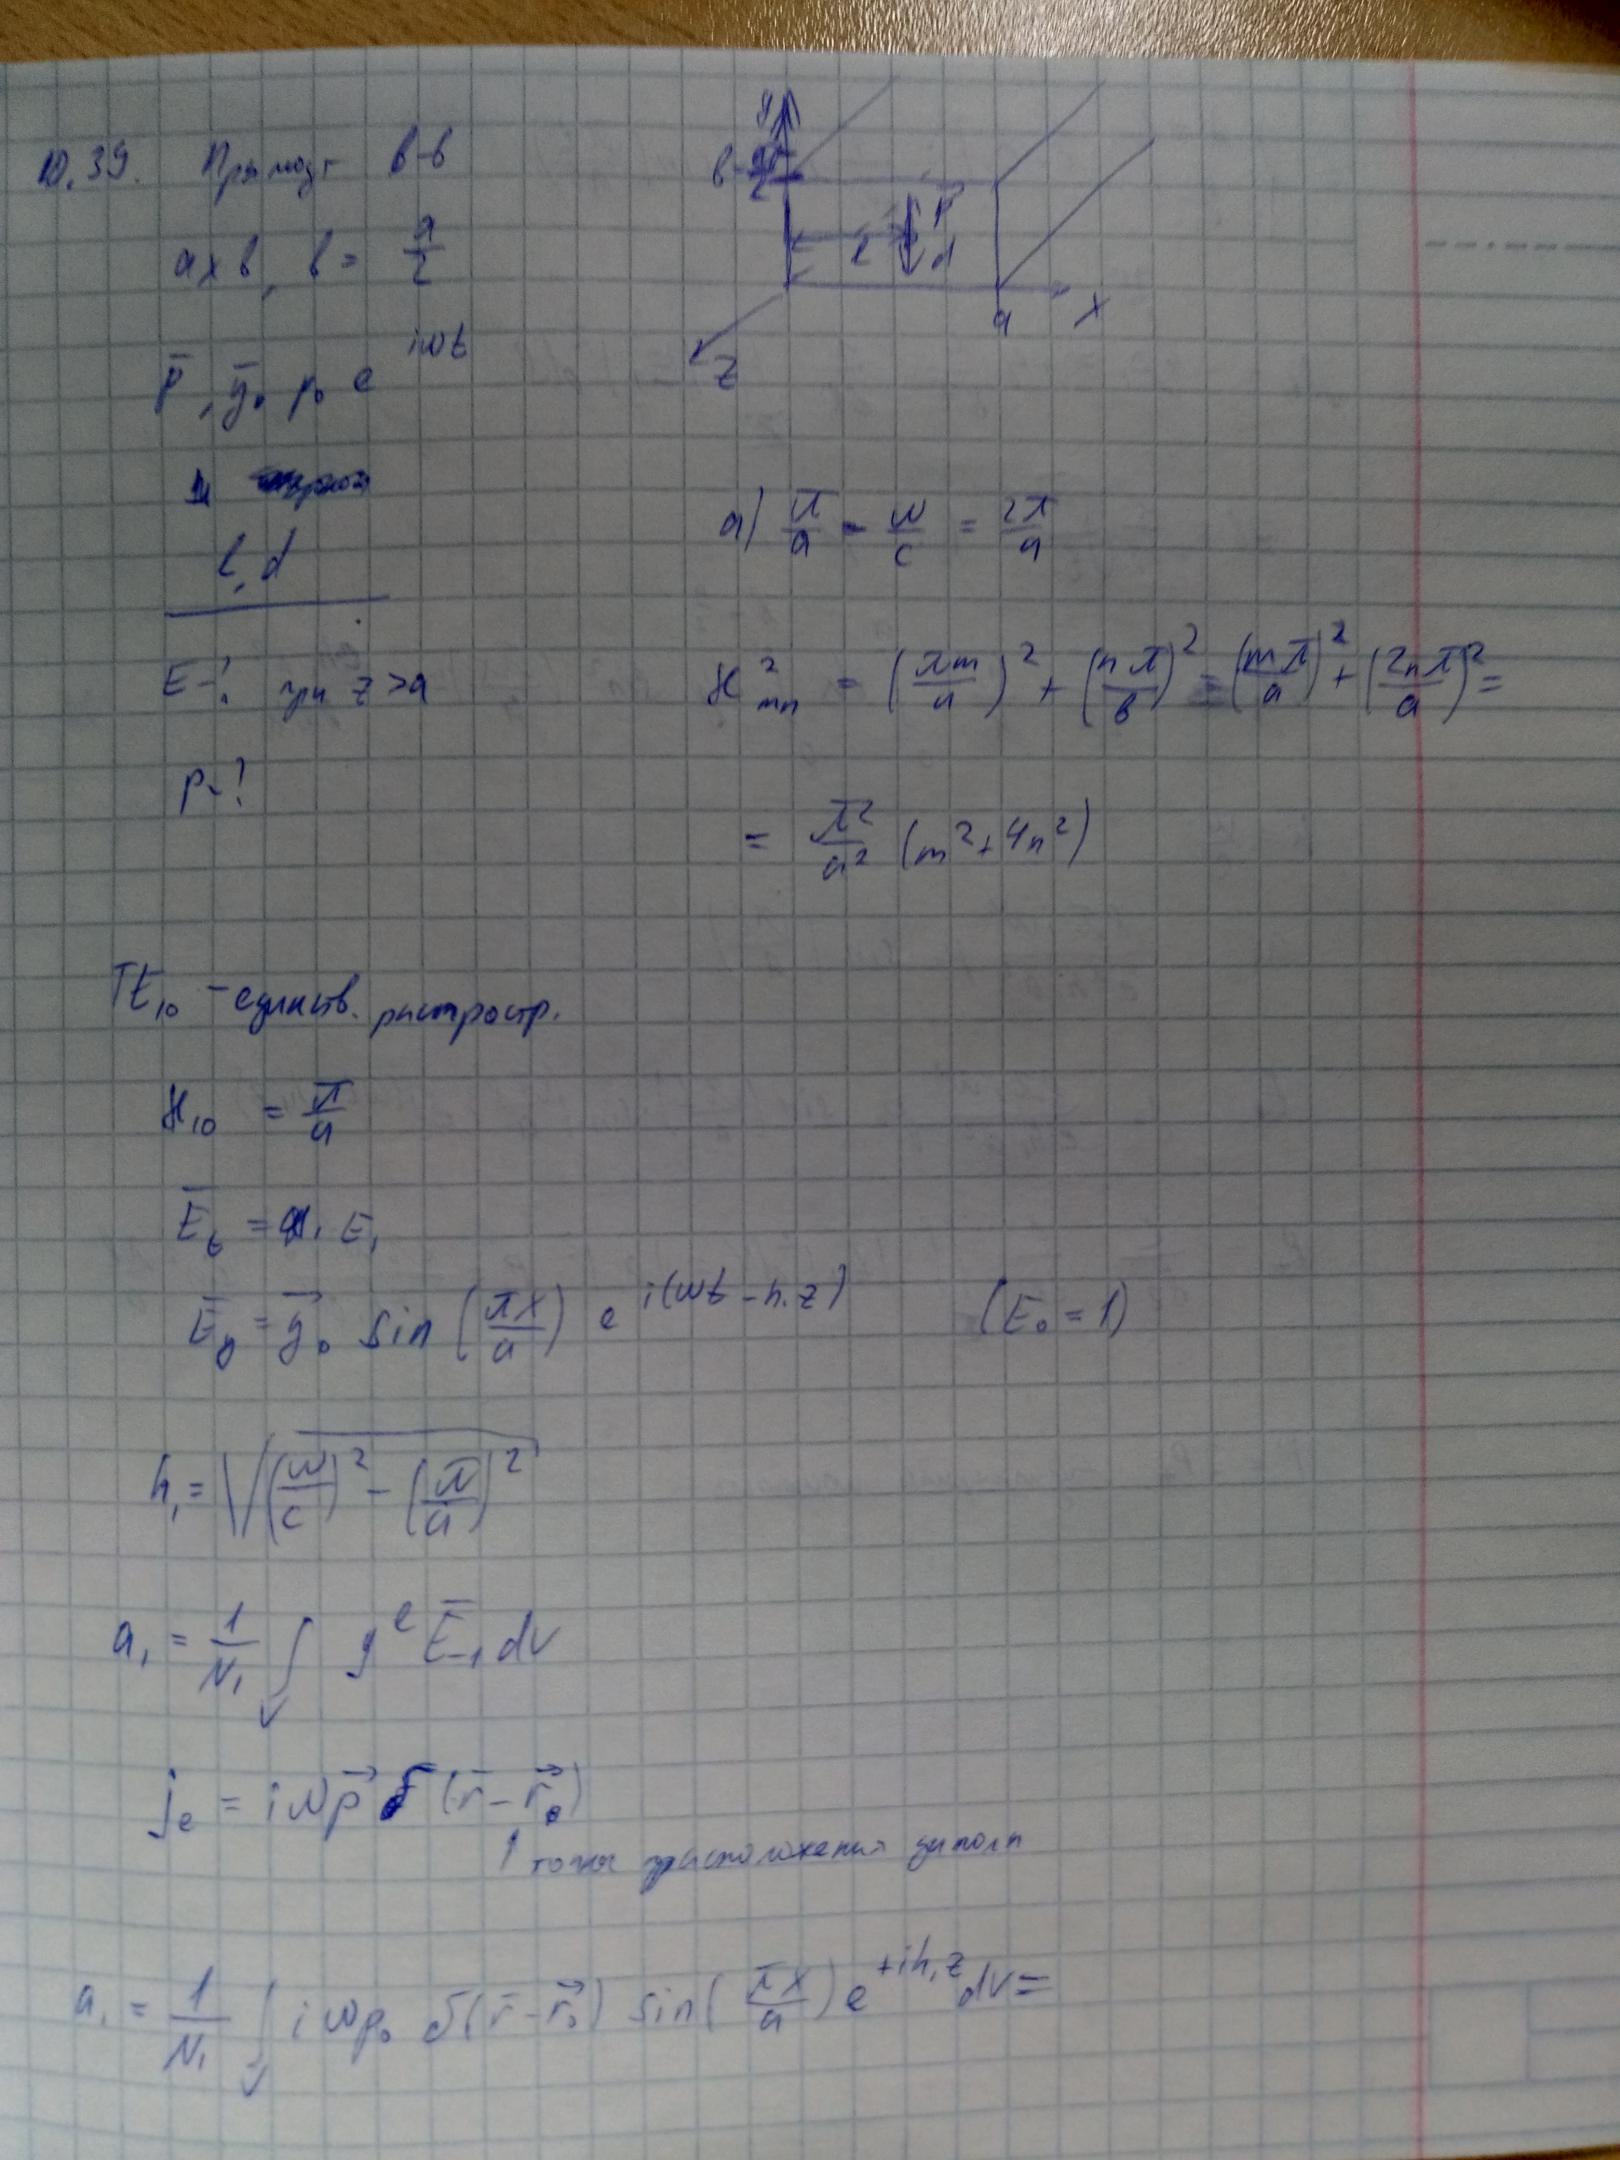 10.39. Прямоуг в-в
a x b, b = a/2
y
b - a/2
p
l
d
a
x
z
p̄, ȳ₀ p₀ e^{iωt}
l, d
E-? при z > a
P-?
a) π/a - ω/c = 2π/a
ϰ²_{mn} = (πm/a)² + (nπ/b)² = (mπ/a)² + (2nπ/a)² =
= π²/a² (m² + 4n²)
TE₁₀ - единств. распростр.
ϰ₁₀ = π/a
Ē_t = a₁ E₁
Ē_y = y⃗₀ sin (πx/a) e^{i(ωt - h₁z)} (E₀ = 1)
h₁ = √((ω/c)² - (π/a)²)
a₁ = 1/N₁ ∫_V j^e Ē₋₁ dV
j_e = iωp⃗ δ(r̄ - r⃗₀)
точка расположения диполя
a₁ = 1/N₁ ∫_V iωp₀ δ(r̄ - r⃗₀) sin(πx/a) e^{+ih₁z} dV =